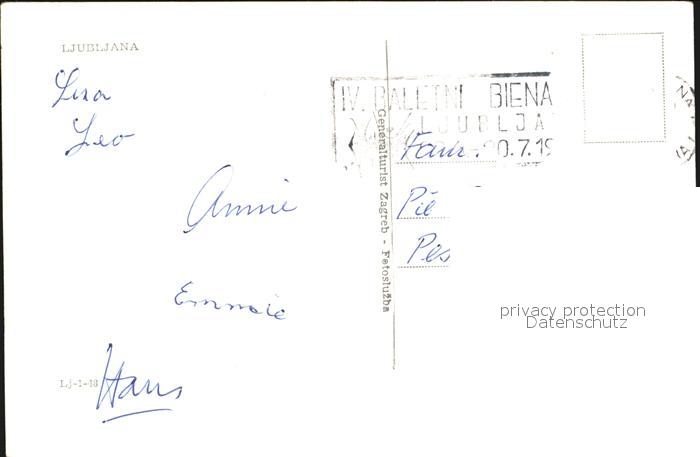 LJUBLJANA
Lisa
Leo
Annie
Emmie
Hans
Lj-1-48
Generalturist Zagreb - Fotoslužba
IV. BALETNI BIENA
LJUBLJA
0.7.19
Fam.
Pil
privacy protection
Datenschutz